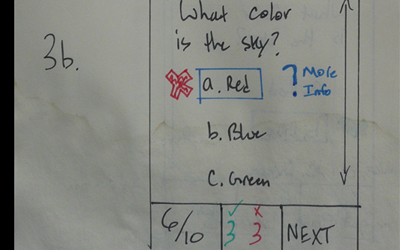 What color
is the sky?
3b.
a. Red
? More
Info
b. Blue
c. Green
6/10
✓ x
3 3
NEXT